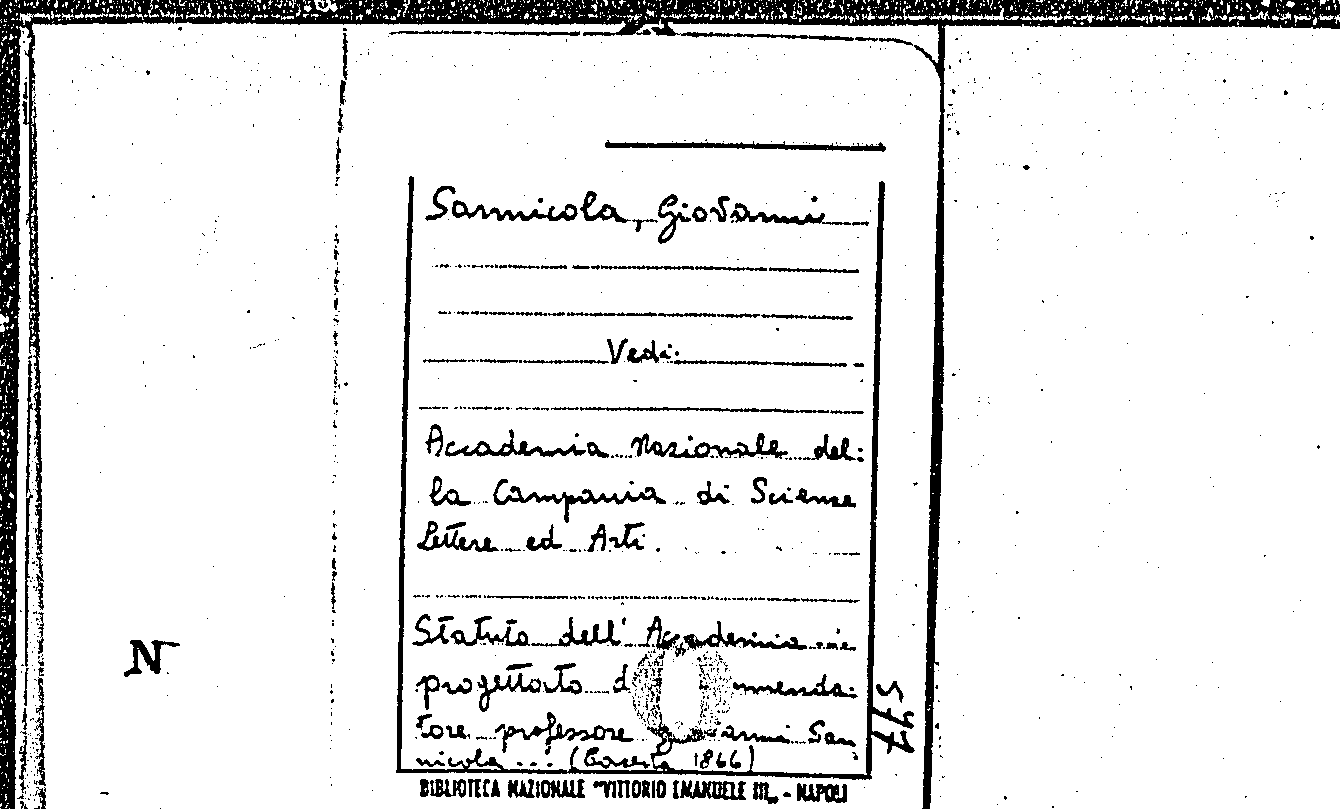 Sannicola, Giovanni
Vedi:
Accademia Nazionale del:
la Campania di Scienze
Lettere ed Arti.
Statuto dell' Accademia ...
progettato
tore professore San
nicola ... (Caserta 1866)
BIBLIOTECA NAZIONALE "VITTORIO EMANUELE III„ - NAPOLI
N